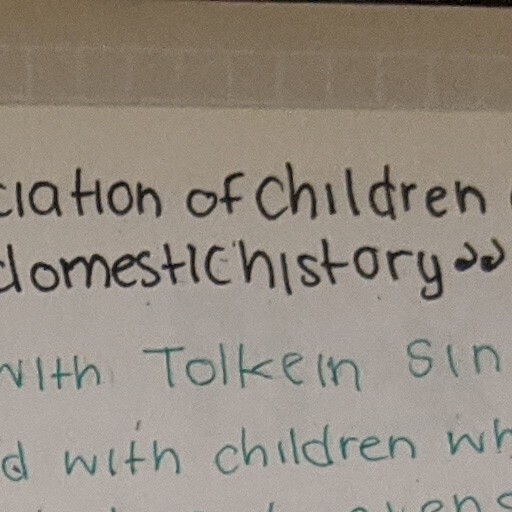 ciation of children
domestic history »
with Tolkein Sin
d with children wh